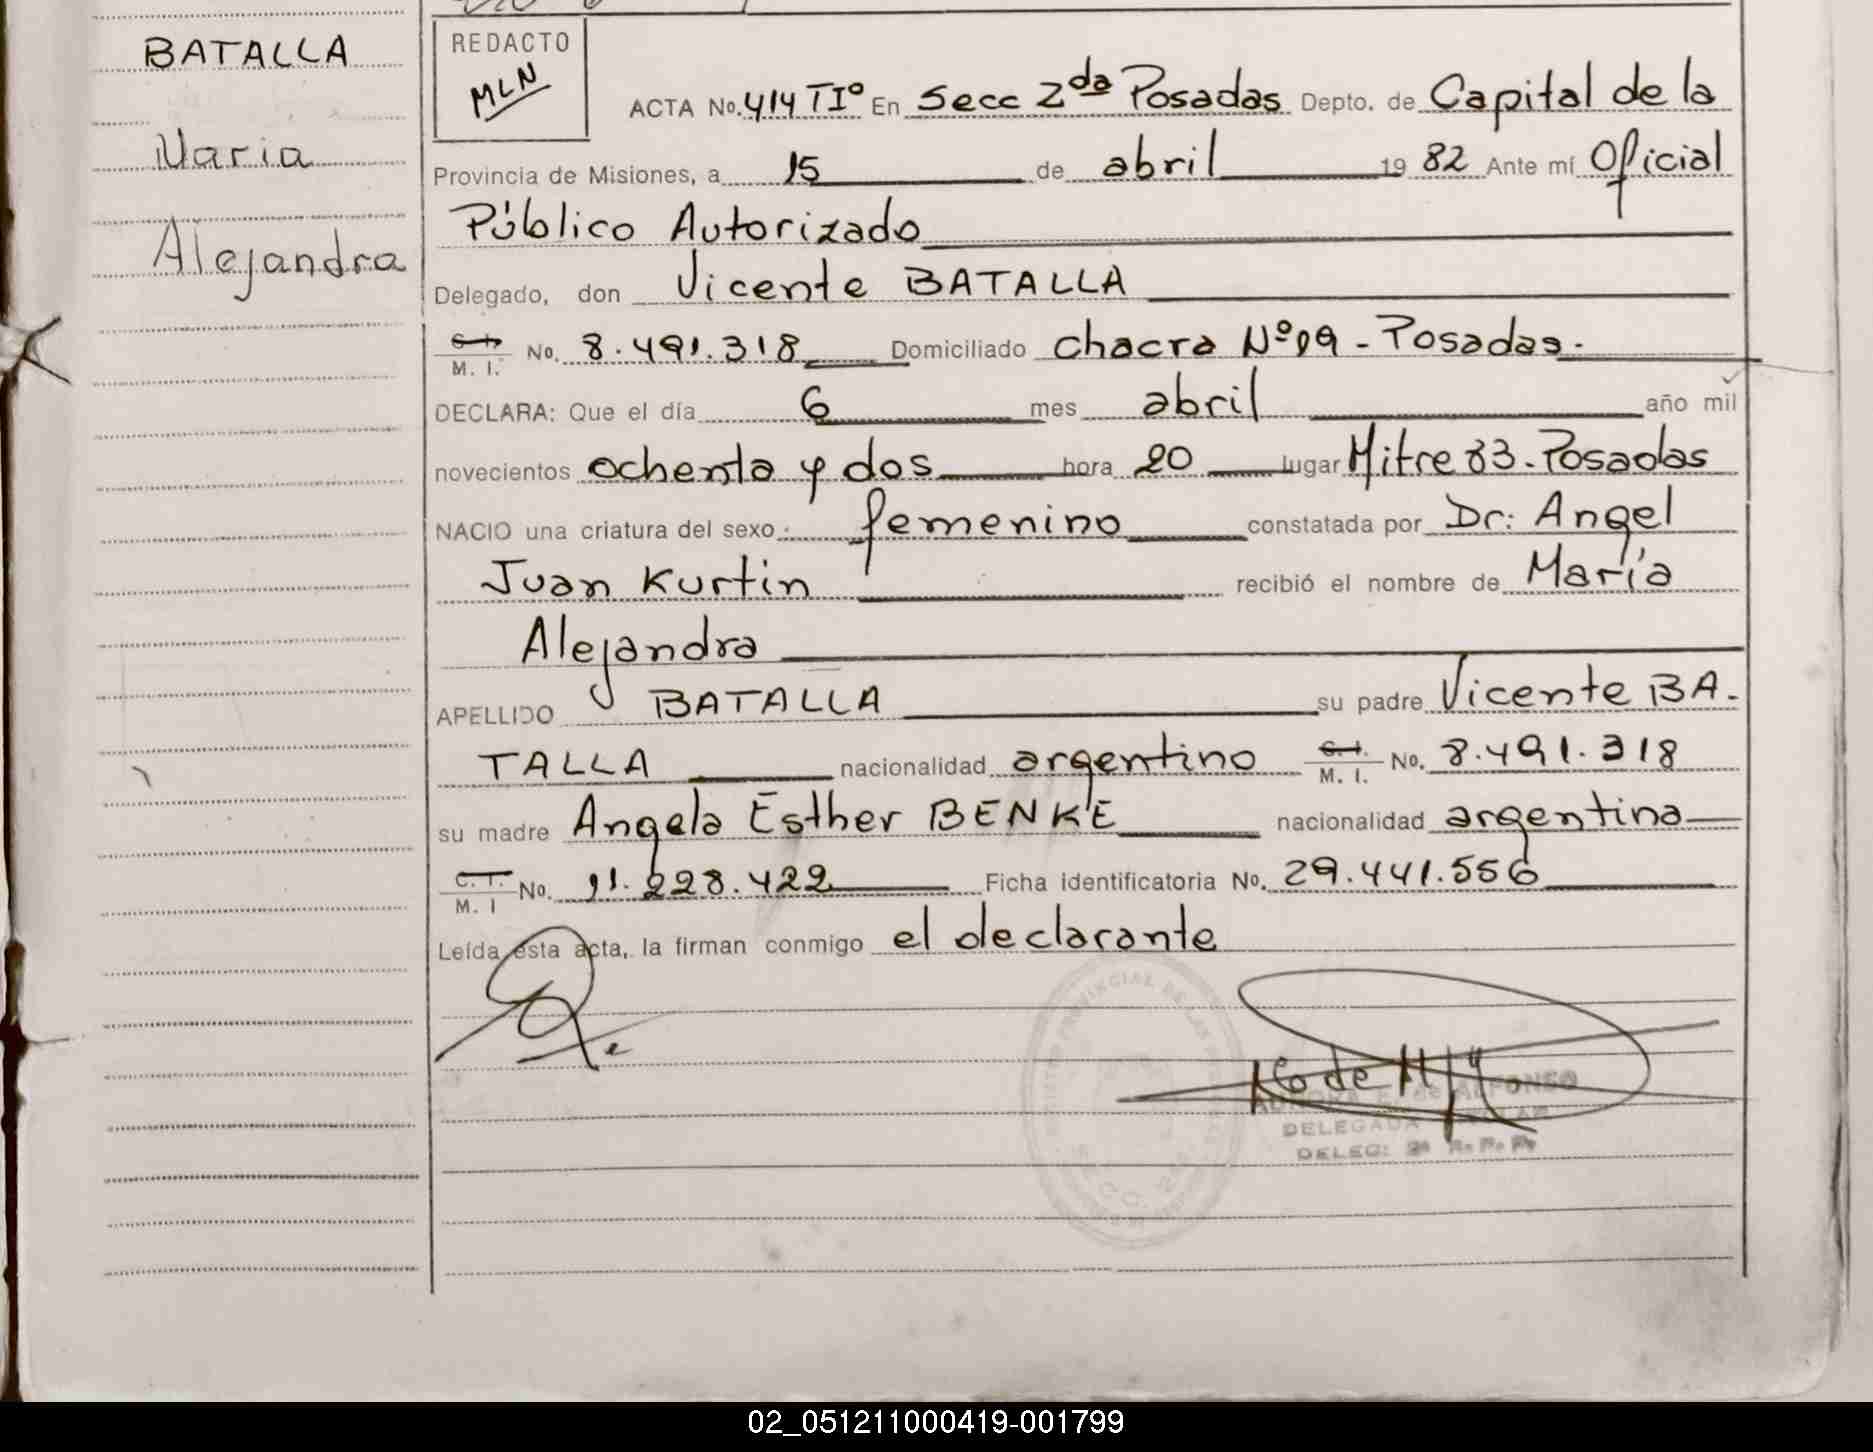 BATALLA
Maria
Alejandra
REDACTO
MLN
ACTA No. 414 TIº En Secc 2da Posadas Depto. de Capital de la
Provincia de Misiones, a 15 de abril 19 82 Ante mí Oficial
Público Autorizado
Delegado, don Vicente BATALLA
C. I. M. I. No. 8.491.318 Domiciliado Chacra Nº 19 - Posadas.
DECLARA: Que el día 6 mes abril año mil
novecientos ochenta y dos hora 20 lugar Mitre 83 - Posadas
NACIO una criatura del sexo femenino constatada por Dr: Angel
Juan Kurtin recibió el nombre de María
Alejandra
APELLIDO BATALLA su padre Vicente BA-
TALLA nacionalidad argentino C. I. M. I. No. 8.491.318
su madre Angela Esther BENKE nacionalidad argentina
C. I. M. I No. 11.228.422 Ficha identificatoria No. 29.441.556
Leída esta acta, la firman conmigo el declarante
DELEGADA
DELEG: 2ª
SECC. 2da
02_051211000419-001799